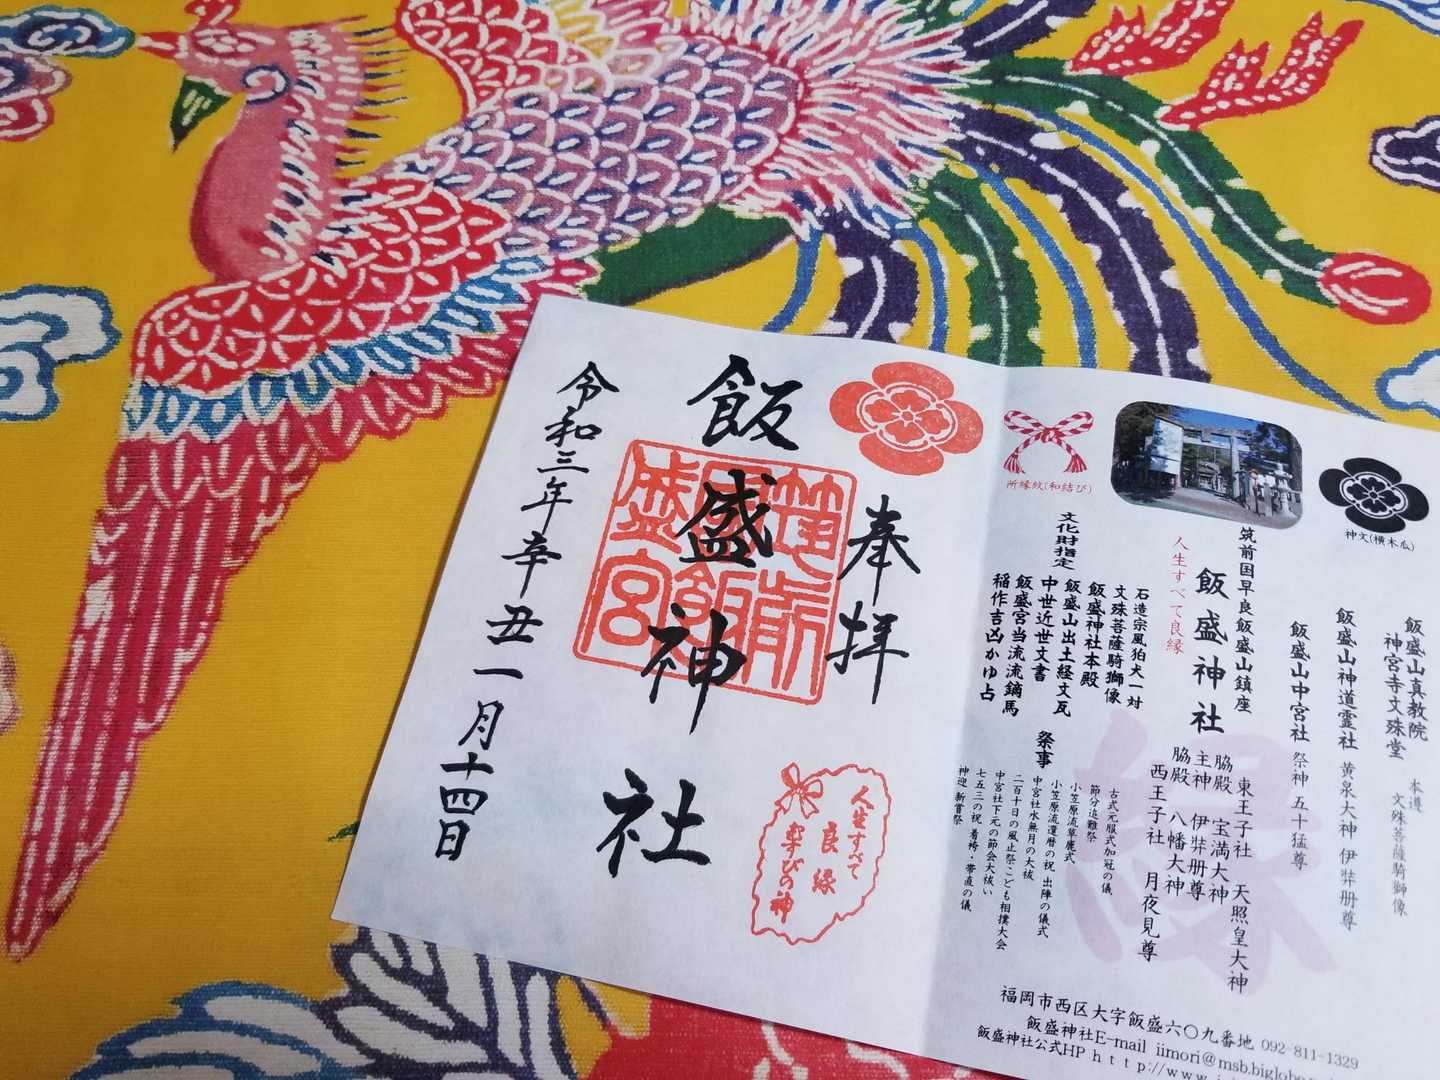 奉拝
飯盛神社
令和三年辛丑一月十四日
筑前国飯盛宮
人生すべて
良縁
結びの神
飯盛山真教院
神宮寺文殊堂
本導
文殊菩薩騎獅像
飯盛山神道霊社 黄泉大神 伊弉册尊
飯盛山中宮社 祭神 五十猛尊
神文(横木瓜)
筑前国早良飯盛山鎮座
飯盛神社
人生すべて良縁
東王子社 天照皇大神
脇殿 宝満大神
主神 伊弉册尊
脇殿 八幡大神
西王子社 月夜見尊
所縁紋(和結び)
文化財指定
石造宗風狛犬一対
文殊菩薩騎獅像
飯盛神社本殿
飯盛山出土経文瓦
中世近世文書
飯盛宮当流流鏑馬
稲作吉凶かゆ占
祭事
古式元服式加冠の儀
節分追難祭
小笠原流草鹿式
小笠原流還暦の祝 出陣の儀式
中宮社水無月の大祓
二百十日の風止祭こども相撲大会
中宮社下元の節会大祓い
七五三の祝 着袴・帯直の儀
神迎 新嘗祭
縁
福岡市西区大字飯盛六〇九番地 092-811-1329
飯盛神社E-mail iimori@msb.biglobe
飯盛神社公式HP http://www.